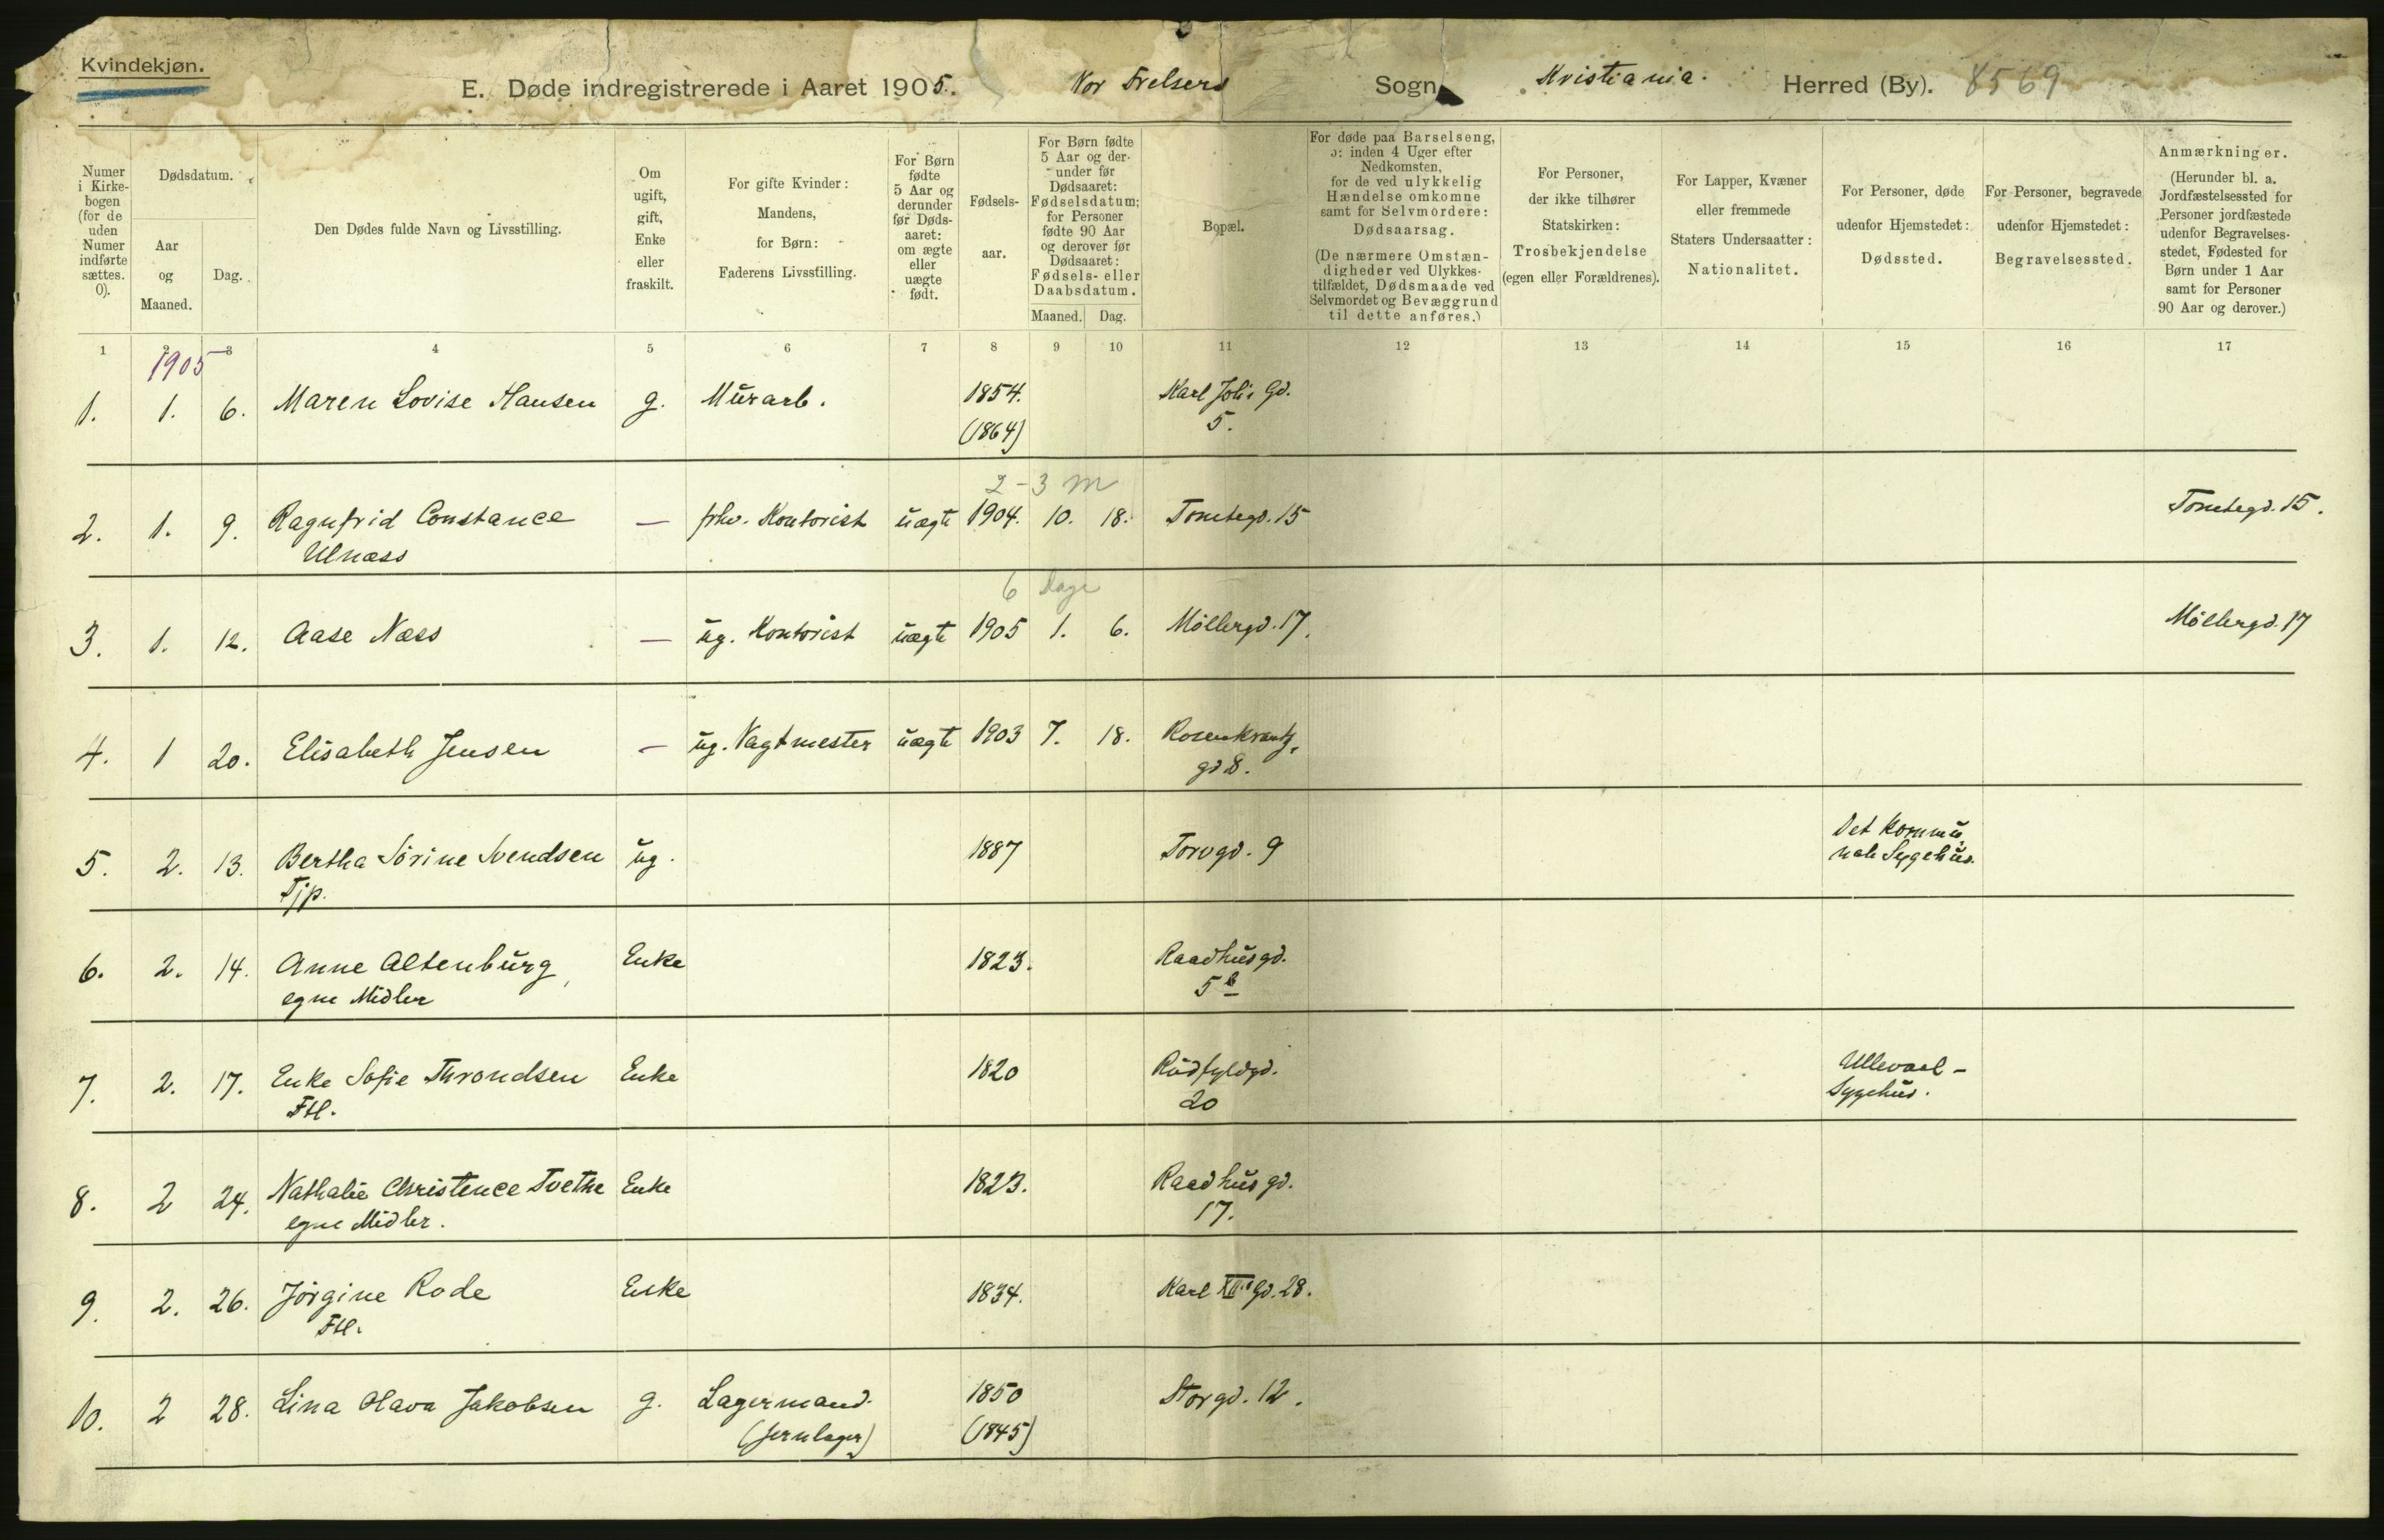 Kvindekjøn.
E. Døde indregistrerede i Aaret 1905. Vor Frelsers Sogn Kristiania. Herred (By). 8569
Numer i Kirkebogen (for de uden Numer indførte sættes. 0).
Dødsdatum.
Aar og Maaned.
Dag.
Den Dødes fulde Navn og Livsstilling.
Om ugift, gift, Enke eller fraskilt.
For gifte Kvinder: Mandens, for Børn: Faderens Livsstilling.
For Børn fødte 5 Aar og derunder før Dødsaaret: om ægte eller uægte født.
Fødselsaar.
For Børn fødte 5 Aar og derunder før Dødsaaret: Fødselsdatum; for Personer fødte 90 Aar og derover før Dødsaaret: Fødsels- eller Daabsdatum.
Maaned. Dag.
Bopæl.
For døde paa Barselseng, ɔ: inden 4 Uger efter Nedkomsten, for de ved ulykkelig Hændelse omkomne samt for Selvmordere: Dødsaarsag.
(De nærmere Omstændigheder ved Ulykkestilfældet, Dødsmaade ved Selvmordet og Bevæggrund til dette anføres.)
For Personer, der ikke tilhører Statskirken: Trosbekjendelse (egen eller Forældrenes).
For Lapper, Kvæner eller fremmede Staters Undersaatter: Nationalitet.
For Personer, døde udenfor Hjemstedet: Dødssted.
For Personer, begravede udenfor Hjemstedet: Begravelsessted.
Anmærkninger.
(Herunder bl. a. Jordfæstelsessted for Personer jordfæstede udenfor Begravelsesstedet, Fødested for Børn under 1 Aar samt for Personer 90 Aar og derover.)
1 2 3 4 5 6 7 8 9 10 11 12 13 14 15 16 17
1905
1. 1. 6. Maren Lovise Hansen g. Murarb. 1854. Karl Joh's Gd.
(1864) 5.
2-3 m
2. 1. 9. Ragnfrid Constance — frhv. Kontorist uægte 1904. 10. 18. Tomtegd. 15 Tomtegd. 15.
Ulnæss
6 Dage
3. 1. 12. Aase Næss — ug. Kontorist uægte 1905 1. 6. Møllergd. 17. Møllergd. 17
4. 1 20. Elisabeth Jensen — ug. Vagtmester uægte 1903 7. 18. Rosenkrantz
gd 8.
5. 2. 13. Bertha Sørine Svendsen ug. 1887 Torvgd. 9 Det kommu
Tjp. nale Sygehus.
6. 2. 14. Anne Altenburg, Enke 1823. Raadhusgd.
egne Midler 5 b
7. 2. 17. Enke Sofie Throndsen Enke 1820 Rådfyldgd. Ullevaal-
Ftl. 20 Sygehus.
8. 2 24. Nathalie Christence Tvethe Enke 1823. Raadhusgd.
egne Midler. 17.
9. 2. 26. Jørgine Rode Enke 1834. Karl XII's Gd. 28.
Ftl.
10. 2 28. Lina Olava Jakobsen g. Lagermand. 1850 Storgd. 12.
(Jernlager) (1845)